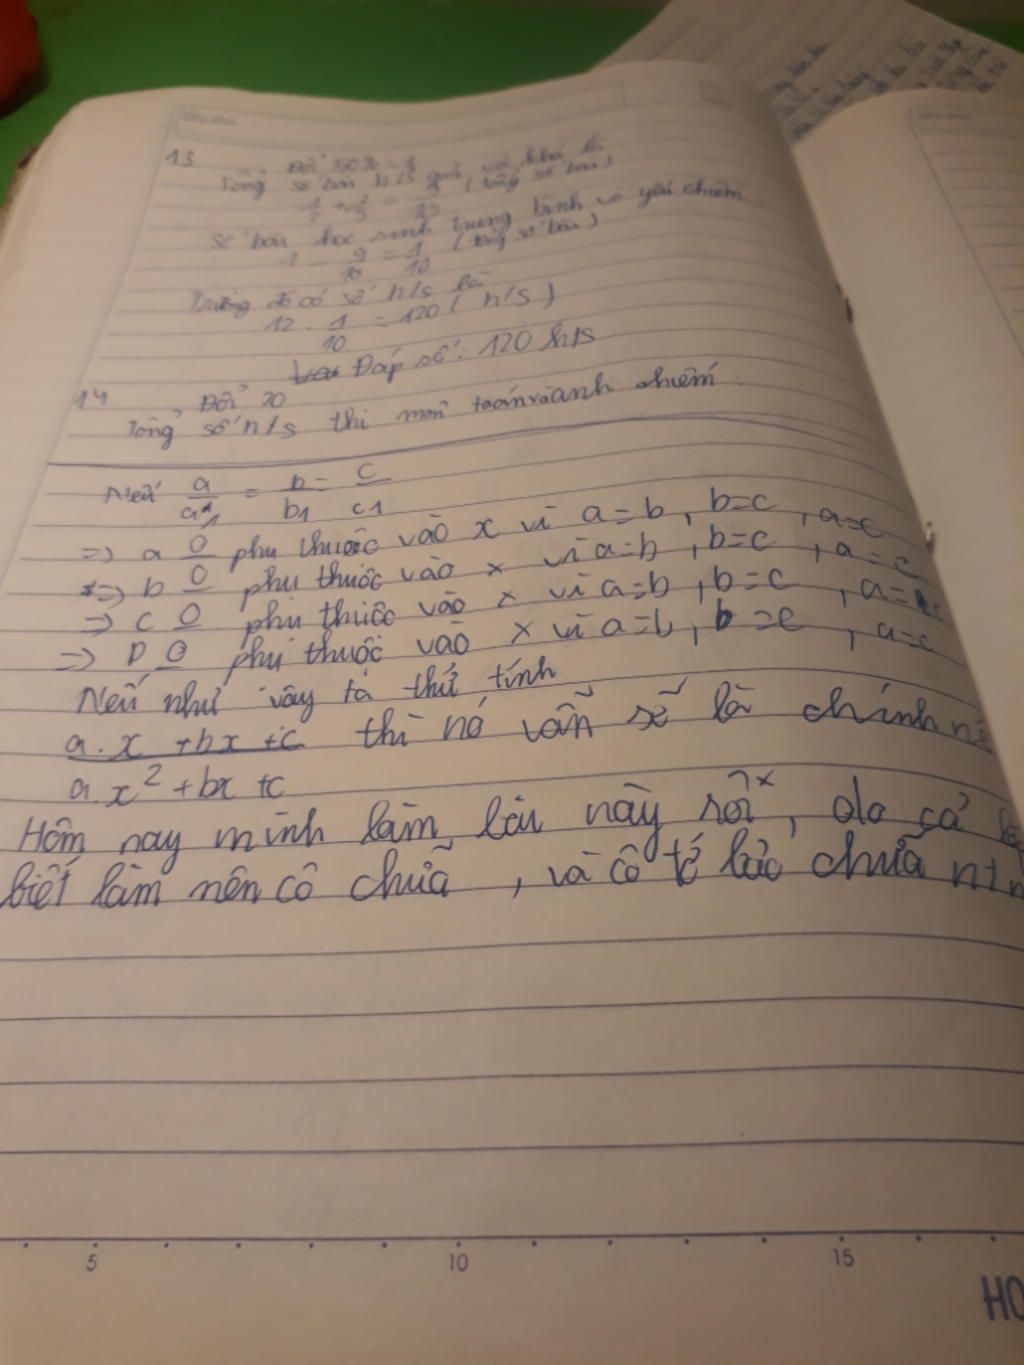 13 Đổi 50% = 1/2
Tổng số bài h/s giỏi và khá là
1/2 + 2/5 = 9/10 (tổng số bài)
Số bài học sinh trung bình và yếu chiếm
1 - 9/10 = 1/10 (tổng số bài)
Trường đó có số h/s là
12 : 1/10 = 120 ( h/s )
Đáp số : 120 h/s
14 Đổi 20
Tổng số h/s thi môn toán và anh chiếm
Nếu a/a1 = b/b1 = c/c1
=> a 0 phụ thuộc vào x vì a = b , b = c , a = c
=> b 0 phụ thuộc vào x vì a = b , b = c , a = c
=> c 0 phụ thuộc vào x vì a = b , b = c , a =
=> D 0 phụ thuộc vào x vì a = b , b = c , a = c
Nếu như vậy ta thử tính
a . x + bx + c thì nó vẫn sẽ là chính nó
a x² + bx + c
Hôm nay mình làm bài này rồi , do cả
biết làm nên cô chữa , và cô